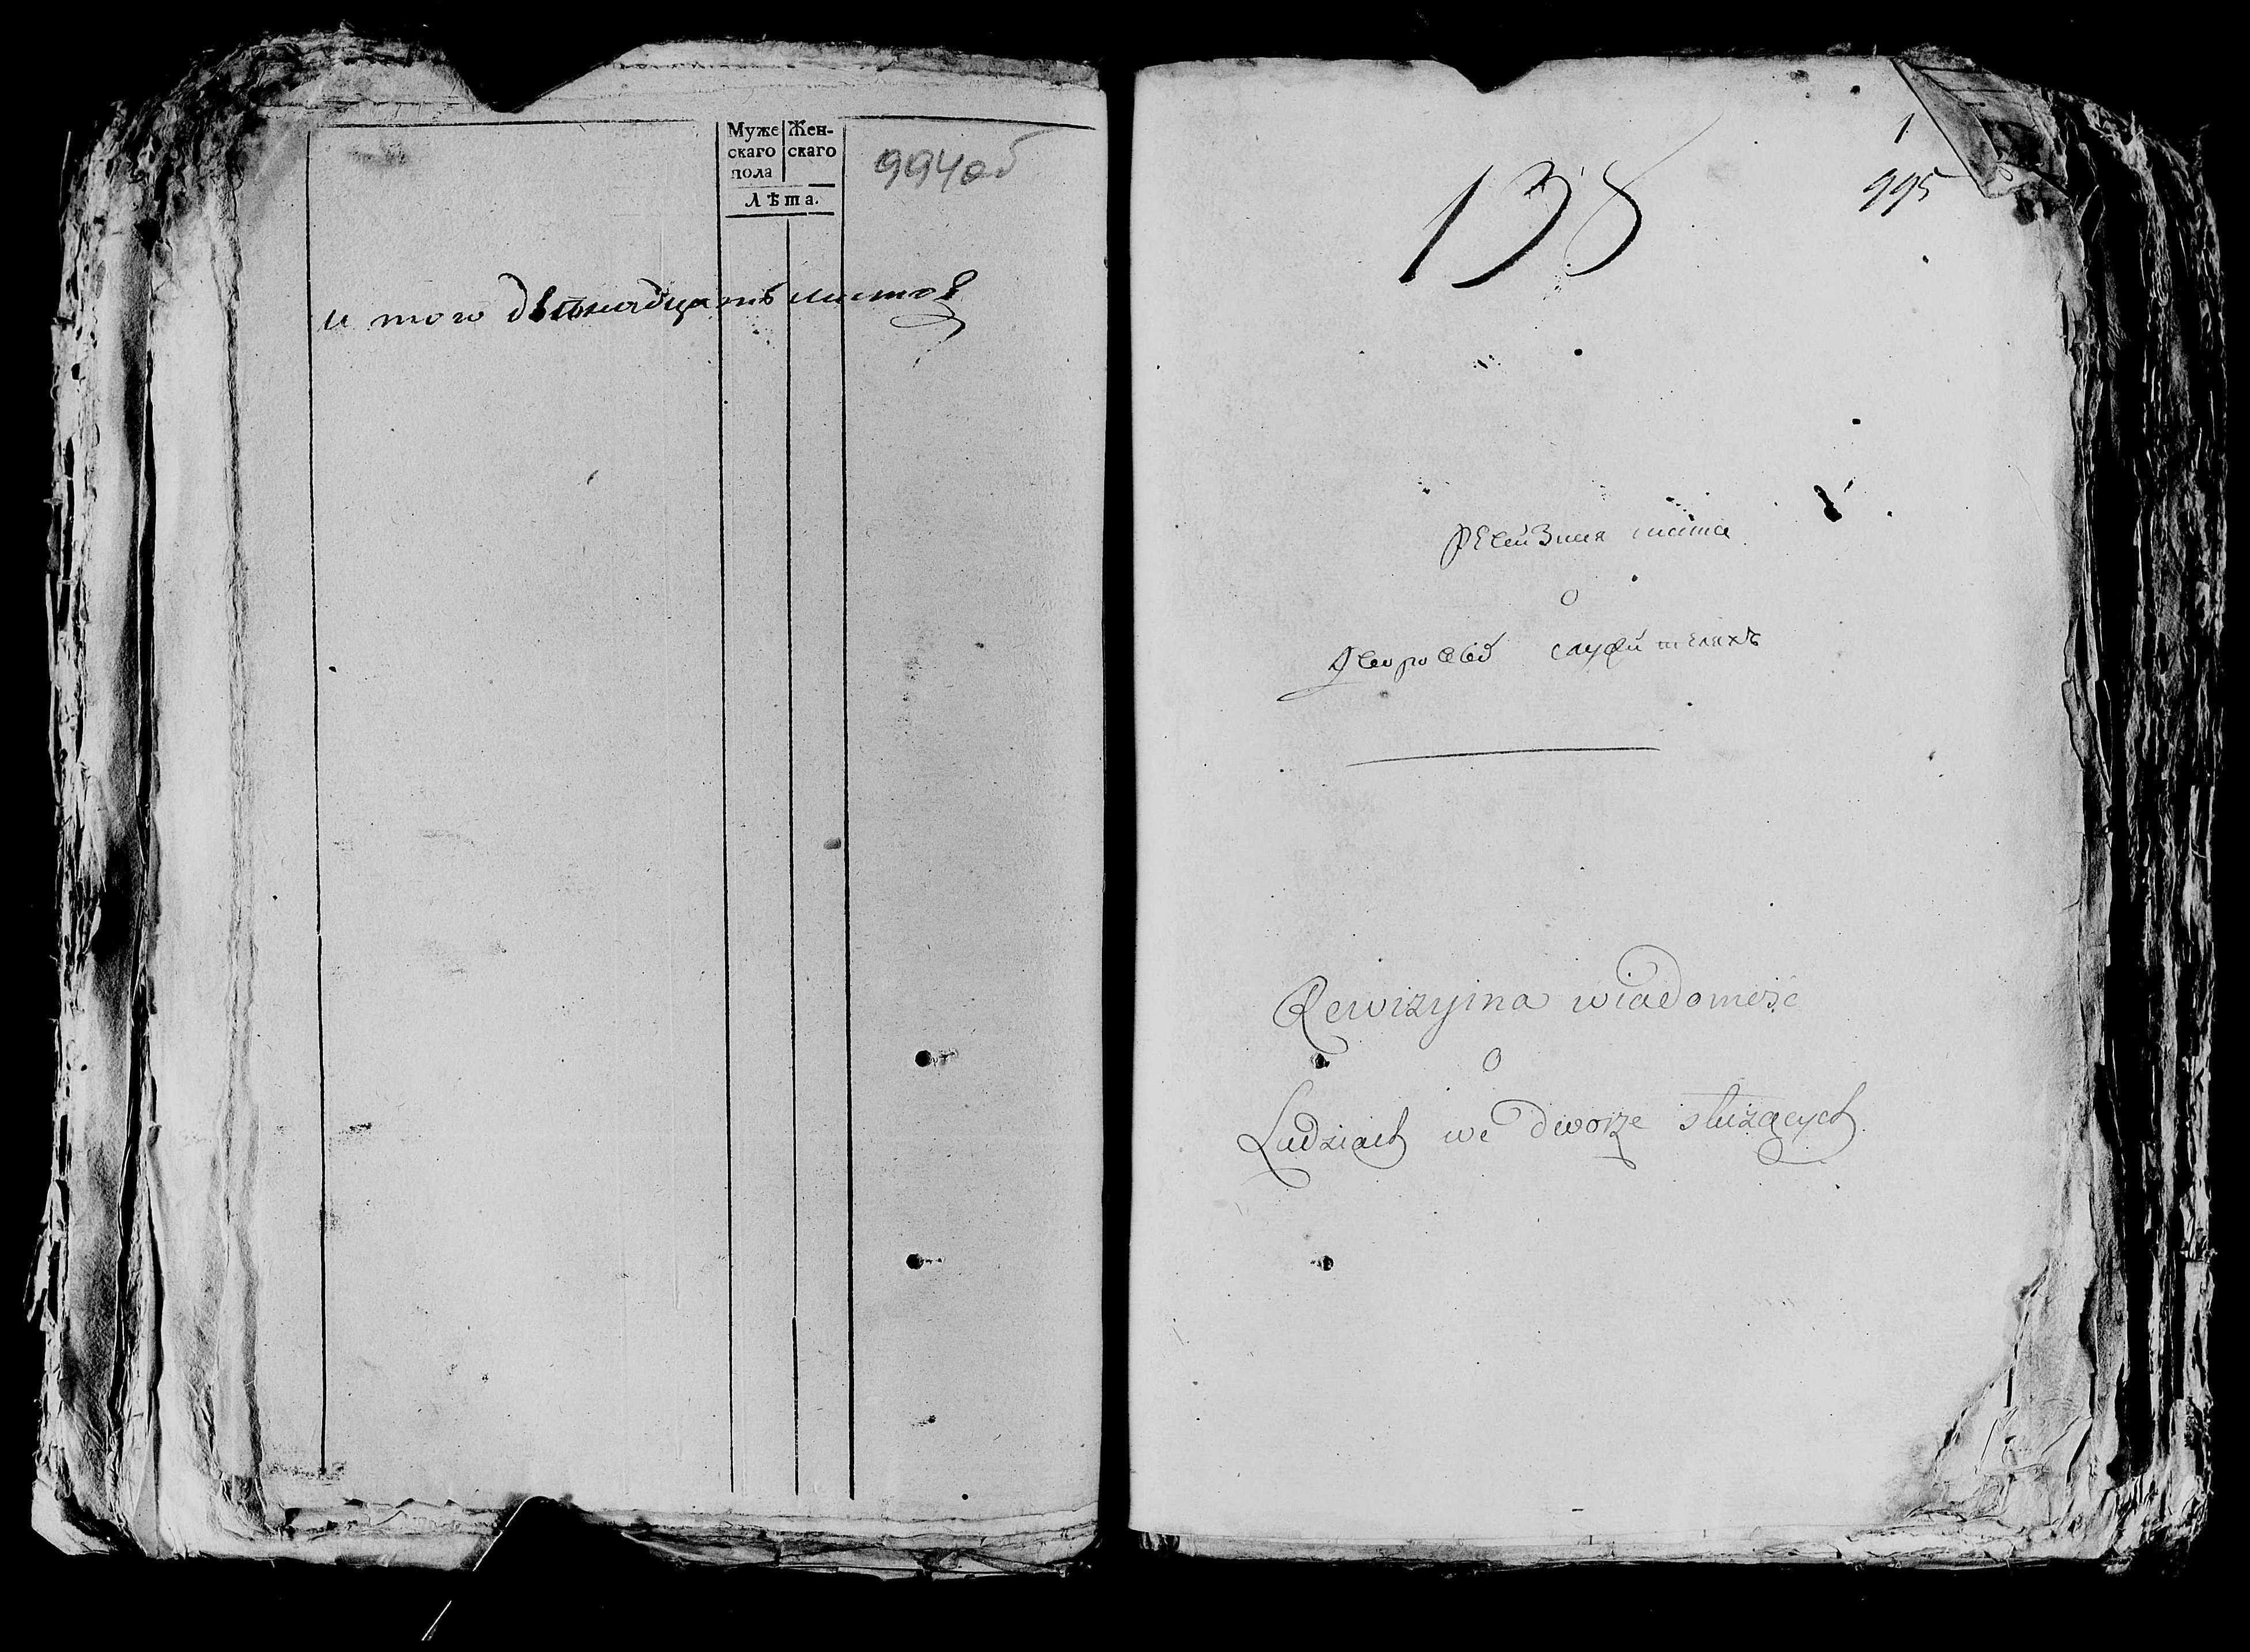 Муже Жен-
скаго скаго
пола
Лѣта.
994об
и того двѣнадцать листов
1
138
995
ревизия
о
дворовых служителяхъ
Rewizyina wiadomość
o
Ludziach we dworze służących